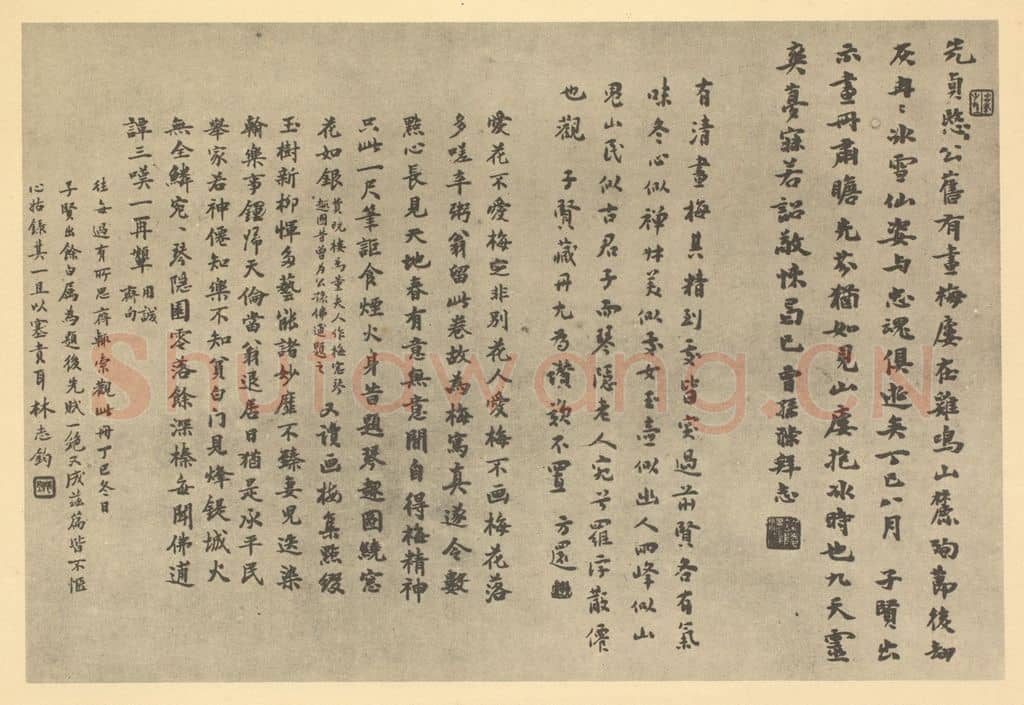 先貞愍公舊有畫梅廔在雞鳴山麓殉節後劫
灰冉〻冰雪仙姿与忠魂俱逝矣丁巳八月 子賢出
示畫冊肅瞻先芬猶如見山廔抱冰時也九天靈
爽夢寐若詔敬悚曷已曾孫滌拜志
有清畫梅其精到家皆突過前賢各有氣
味冬心似禪叔美似子女玉壺似幽人兩峰似山
鬼山民似古君子而琴隱老人宛兮羅浮散僊
也觀 子賢藏冊尤為讚歎不置 方還
愛花不愛梅定非別花人愛梅不画梅花落
多嗟辛粥翁留此卷故為梅寫真遂令數
點心長見天地春有意無意間自得梅精神
只此一尺筆詎食煙火身昔題琴趣圖繞窓
花如銀 樓為董夫人作梅窓琴趣圖昔曾為公孫佛逋題之 又讀画梅集點綴
玉樹新柳惲多藝能諸妙靡不臻妻兒迭染
翰樂事歸天倫當翁退居日猶是承平民
舉家若神僊知樂不知貧白门見烽鍉城火
無全鱗宛〻琴隱園零落餘深榛每聞佛逋
譚三嘆一再顰 用誠齋句
往每過有所思齋輒索觀此冊丁巳冬日
子賢出餘白属為題後先賦一絶又成茲篇皆不愜
心姑録其一且以塞責耳 林志鈞
Shufawang.CN